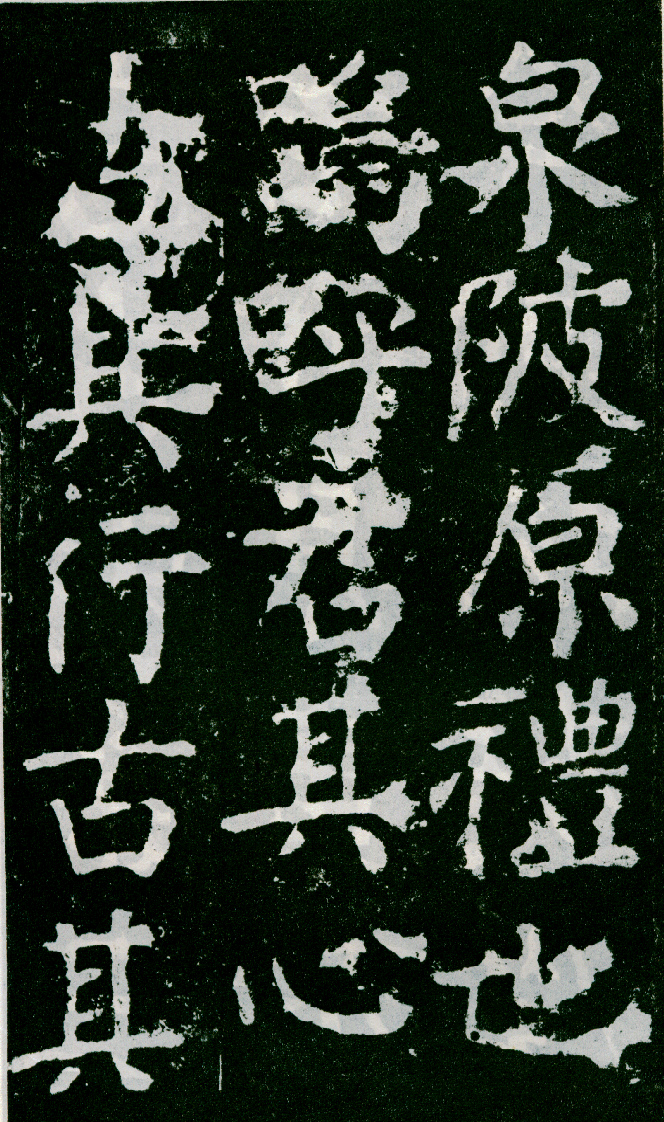 泉陂原禮也
嗚呼君其心
古其行古其